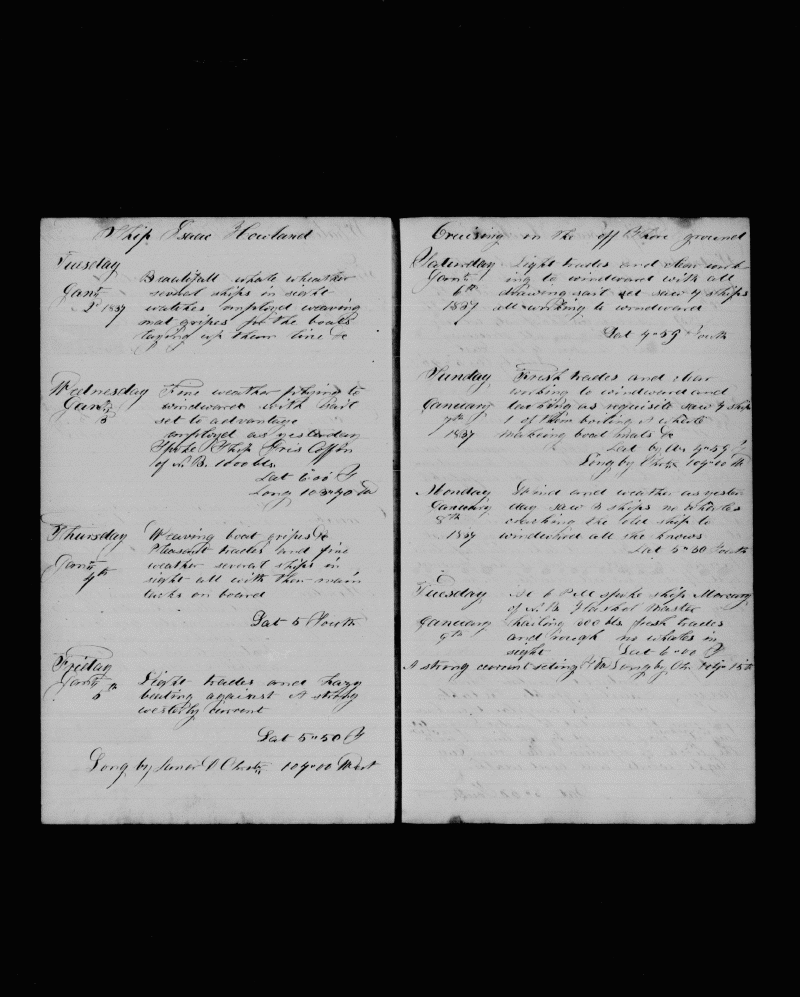 Ship Isaac Howland
Tuesday
Beautifull whale wheather
Janry several ships in sight
2d 1837 watches employed weaving
mat gripes for the boats
laying up them line &c
Wednesday Fine weather plying to
Janry windward with sail
3 set to advantage
employed as yesterday
Spoke Ship Coffin
of N. B. 1000 bbls
Lat 6"00 S
Long
Thursday Weaving boat gripes &c
Pleasant trades and fine
Janry weather several ships in
4th sight all with their main
tacks on board
Lat 5 South
Friday
Janry Light trades and hazy
5th beating against A strong
westerly current
Lat 5"50 S
Long by Lunar & Chro 107"00 West
Cruising in the off Shore ground
Saturday Light trades and clear work-
Janry ing to windward with all
6th drawing sail set saw 4 ships
1837 all working to windward
Lat 4"59 South
Sunday Fresh trades and clear
working to windward and
January tacking as requisite saw 4 ships
7th 1 of them boiling A whale
1837 makeing boat mats &c
Lat by Obs 4"59 S
Long by Chro 107"00 W
Monday Wind and weather as yester
January day saw 3 ships no whales
8th crushing the old ship to
1837 windward all she knows
Lat 5"50 South
Tuesday At 6 P.M. spoke ship Mercury
of N. B. Haskel Master
January hailing 800 bbls fresh trades
9th and rough no whales in
sight Lat 6"00 S
A strong current seting Long by Chr